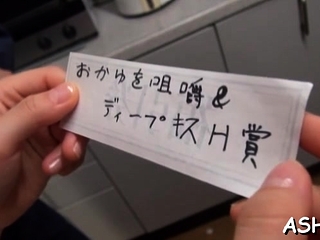 おかゆを咀嚼&
ディープキスH賞
ASH